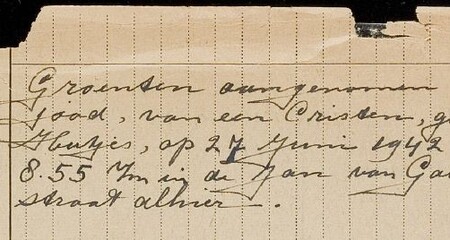 Groenten aangenomen
jood, van een Cristen, g
Hutjes, op 27 Juni 1942
8.55 in de Jan van Ga
straat alhier.